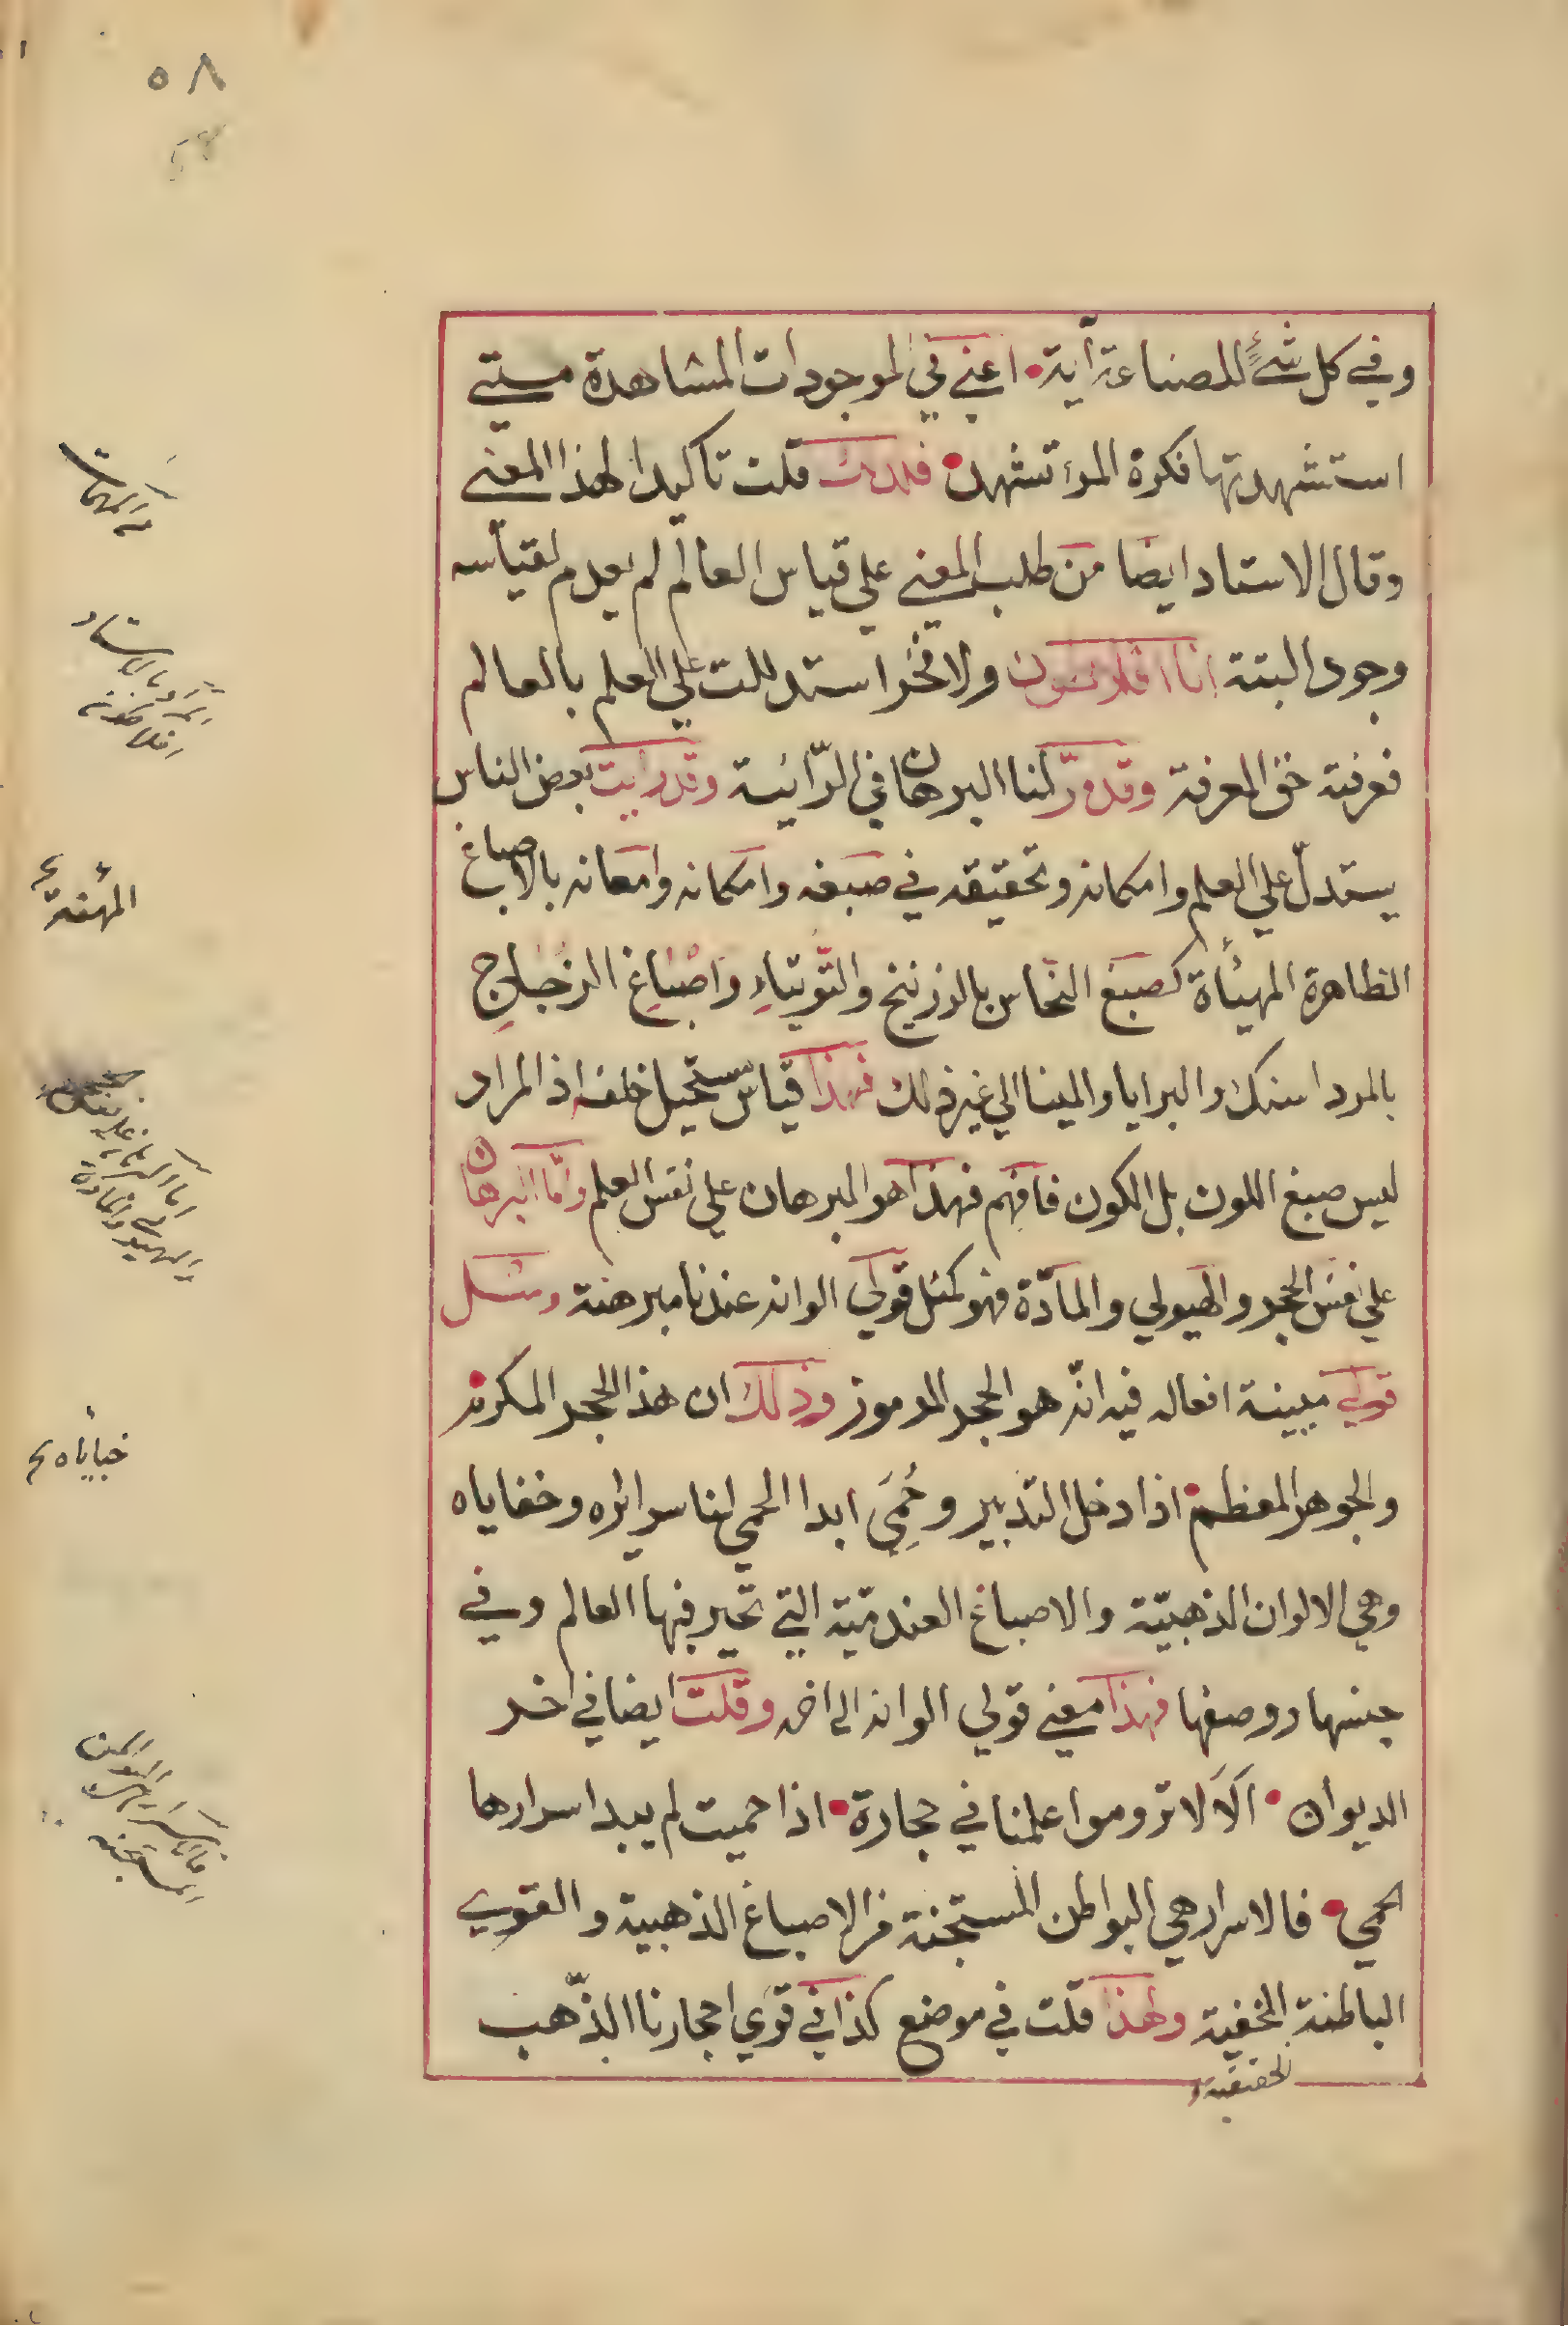 ٥٨
وفي كل شئ للصناعة آية • اعني في الموجودات المشاهدة متي
استشهدتها فكرة المرء تشهد • فلذلك قلت تاكيدا لهذا المعني
وقال الاستاد ايضا من طلب المعني علي قياس العالم لم يعدم لقياسه
وجودا البتة انا افلاطون ولا فخر استدللت علي العلم بالعالم
فعرفته حق المعرفة وقد مرّ لنا البرهان في الرّائية وقد رايت بعض الناس
يستدلّ علي العلم وامكانه وتحقيقه في صبغه وامكانه وامعانه بالاصباغ
الظاهرة المهيأة كصبغ النحاس بالزرنيخ والتّوتياءِ واصْباغِ الزُجاجِ
بالمرداسنك والبرايا والمينا الي غير ذلك فهذا قياس ستحيل خلفه اذ المراد
ليس صبغ اللون بل الكون فافهم فهذا هو البرهان علي نفس العلم وامّا البرهان
علي نفس الحجر والهيولي والمادّة فهو كمثل قولي الوانه عندنا مبرهنة ومثل
قولي مبينة افعاله فيه انّه هو الحجر المرموز وذلك ان هذا الحجر المكرم
والجوهر المعظم • اذا دخل التدبير وحُمِيَ ابدا الحمي لنا سرايره وخفاياه
وهي الالوان الذهبيّة والاصباغ العندميّة التي تحير فيها العالم وفي
جنسها ووصفها فهذا معني قولي الوانه الى اخره وقلت ايضا في اخر
الديوان • اَلَا لا تروموا علمنا في حجارة • اذا حميت لم يبد اسرارها
الحمي • فالاسرار هي البواطن المستجنة من الاصباغ الذهبية والقوي
الباطنة الخفية ولهذا قلت في موضع كذا في قوي احجارنا الذّهب
الحقيقية
المهنة
خباياه